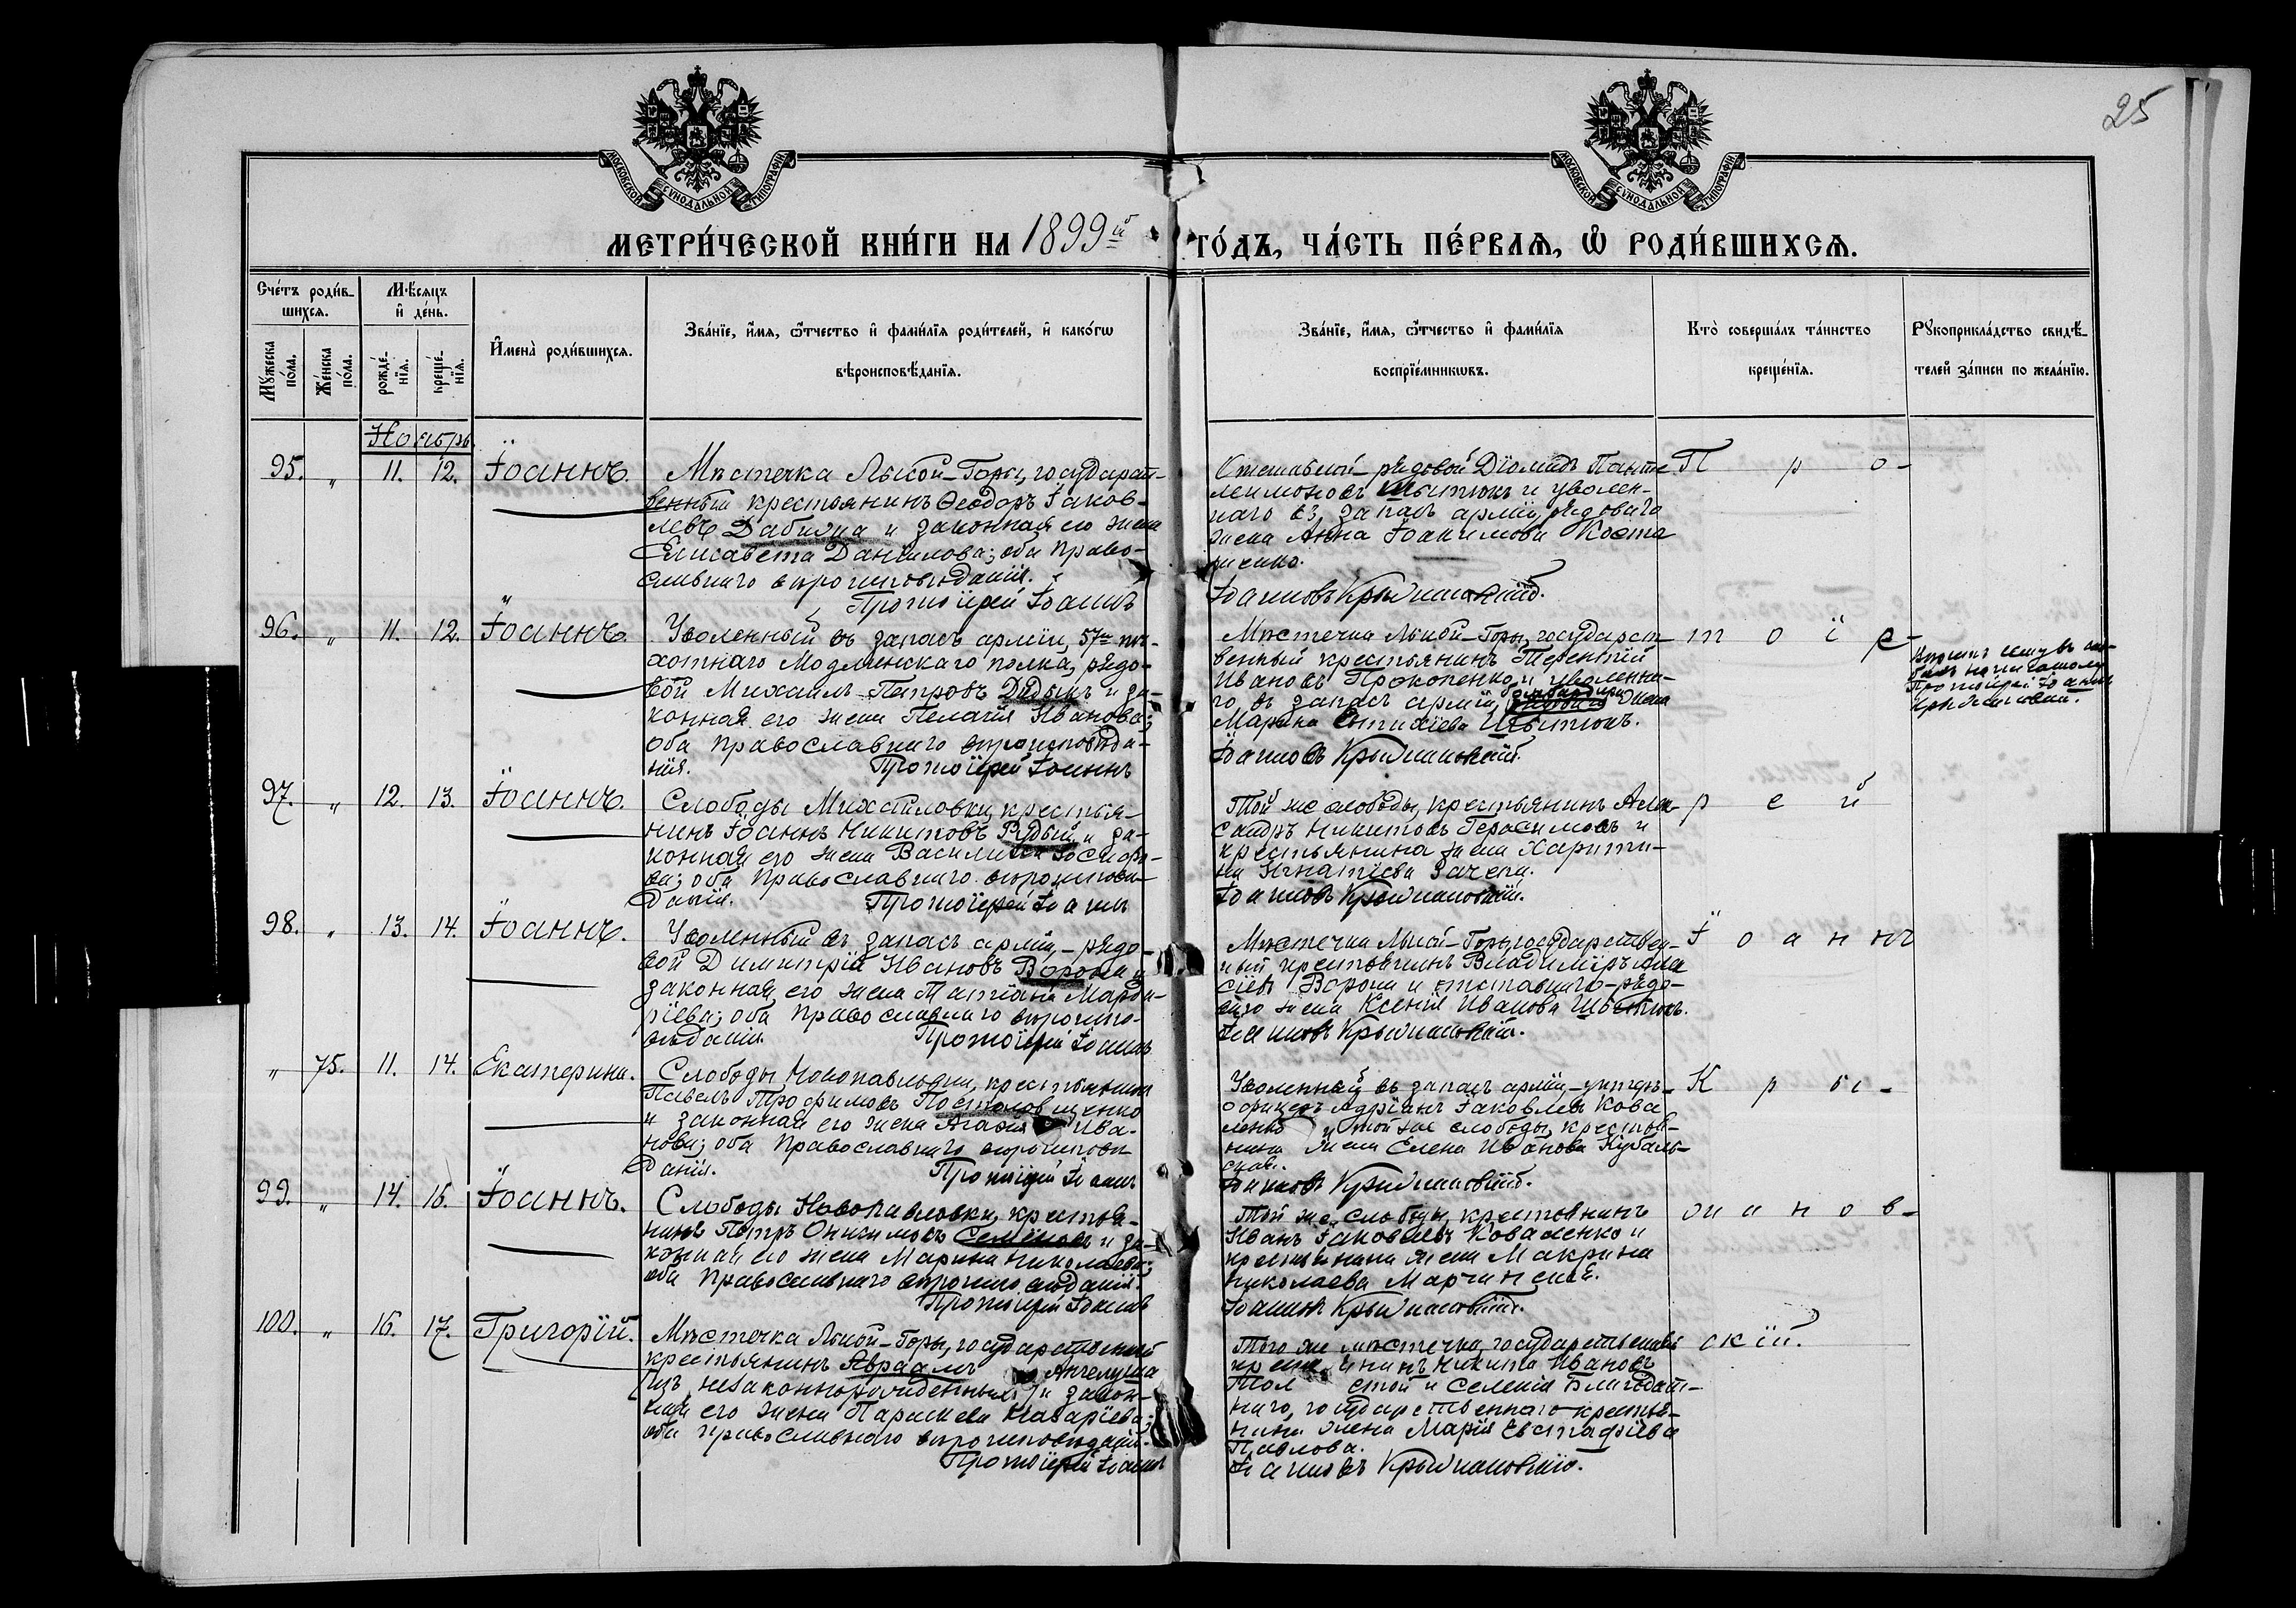 25
МОСКОВСКОЙ СѴНОДАЛЬНОЙ ТИПОГРАФІИ
МОСКОВСКОЙ СѴНОДАЛЬНОЙ ТИПОГРАФІИ
МЕТРИ́ЧЕСКОЙ КНИ́ГИ НА 1899й ГО́ДЪ, ЧА́СТЬ ПЕ́РВАѦ, Ѽ РОДИ́ВШИХСѦ.
Сче́тъ роди́в-
шихсѧ.
Мꙋ́жеска по́ла.
Же́нска по́ла.
Мѣ́сѧцъ
и де́нь.
рожде́-
нїѧ.
креще́-
нїѧ.
Имена̀ роди́вшихсѧ.
Зва́нїе, и́мѧ, ѻ́тчество и фами́лїѧ роди́телей, и како́гѡ
вѣроисповѣ́данїѧ.
Зва́нїе, и́мѧ, ѻ́тчество и фами́лїѧ
воспрїе́мникѡвъ.
Кто̀ соверша́лъ та́инство
креще́нїѧ.
Рꙋкоприкла́дство свидѣ́-
телей за́писи по жела́нїю.
Ноябрь.
95. „ 11. 12. Іоаннъ.
Мѣстечка Лысой-Горы, государст-
венный крестьянинъ Ѳеодоръ Іаков-
левъ Дабижа и законная его жена
Елисавета Даніилова; оба право-
славнаго вѣроисповѣданія.
Протоіерей Іоаннъ
Отставной рядовой Діомидъ Панте-
леимоновъ Шыстюкъ и уволен-
наго въ запасъ арміи, рядового
жена Анна Іоакимова Коста
ненко.
Іоанновъ Крыжановскій.
Про-
96. „ 11. 12. Іоаннъ.
Уволенный въ запасъ арміи, 57го пѣ-
хотнаго Модлинскаго полка, рядо-
вой Михаилъ Петровъ Дидыкъ и за-
конная его жена Пелагія Иванова;
оба православнаго вѣроисповѣда-
нія. Протоіерей Іоаннъ
Мѣстечка Лысой-Горы, государст-
венный крестьянинъ Терентій
Ивановъ Прокопенко и уволенна-
го въ запасъ арміи, бомбардира жена
Марина Шыстюкъ.
Іоанновъ Крыжановскій.
тоіе-
Протоіерей Іоаннъ
Крыжановскій.
97. „ 12. 13. Іоаннъ.
Слободы Михайловки, крестья-
нинъ Іоаннъ Никитовъ Рудый и за-
конная его жена Василиса Іосифо-
ва; оба православнаго вѣроисповѣ-
данія. Протоіерей Іоаннъ
Той же слободы, крестьянинъ Алек-
сандръ Никитовъ Герасимовъ и
крестьянина жена Харити-
на Игнатіева Зачепа.
Іоанновъ Крыжановскій.
рей
98. „ 13. 14. Іоаннъ.
Уволенный въ запасъ арміи,-рядо-
вой Димитрій Ивановъ Ворона и
законная его жена Татіана Марда-
ріева; оба православнаго вѣроиспо-
вѣданія. Протоіерей Іоаннъ
Мѣстечка Лысой-Горы, государствен-
ный крестьянинъ Владиміръ Алек
сіевъ Ворона и отставнаго-рядо-
ваго жена Ксенія Иванова Шыстюкъ.
Іоанновъ Крыжановскій.
Іоаннъ
„ 75. 11. 14. Екатерина.
Слободы Новопавловки, крестьянинъ
Павелъ Трофимовъ Постоловщенко
и законная его жена Агафія Ива-
нова; оба православнаго вѣроисповѣ
данія. Протоіерей Іоаннъ
Уволенный въ запасъ арміи,-унтеръ-
офицеръ Адріанъ Іаковлевъ Кова
ленко и той же слободы, крестья-
нина жена Елена Иванова Кубаль-
ская.
Іоанновъ Крыжановскій.
Кры-
99. „ 14. 16. Іоаннъ.
Слободы Новопавловки, крестья-
нинъ Петръ Онисимовъ Семёновъ и за-
конная его жена Марина Николаева;
оба православнаго вѣроисповѣданія.
Протоіерей Іоаннъ
Той же слободы, крестьянинъ
Иванъ Іаковлевъ Коваленко и
крестьянина жена Макрина
Николаева Марчинская.
Іоанновъ Крыжановскій.
жанов-
100. „ 16. 17. Григорій.
Мѣстечка Лысой-Горы, государственный
крестьянинъ Авраамъ Ангелуша
(изъ незаконнорожденныхъ) и закон-
ная его жена Параскева Назаріева;
оба православнаго вѣроисповѣданія.
Протоіерей Іоаннъ
Того же мѣстечка, государственный
крестьянинъ Никита Ивановъ
Толстой и селенія Благодат-
наго, государственнаго крестья-
нина жена Марія Евстафіева
Павлова.
Іоанновъ Крыжановскій.
скій.